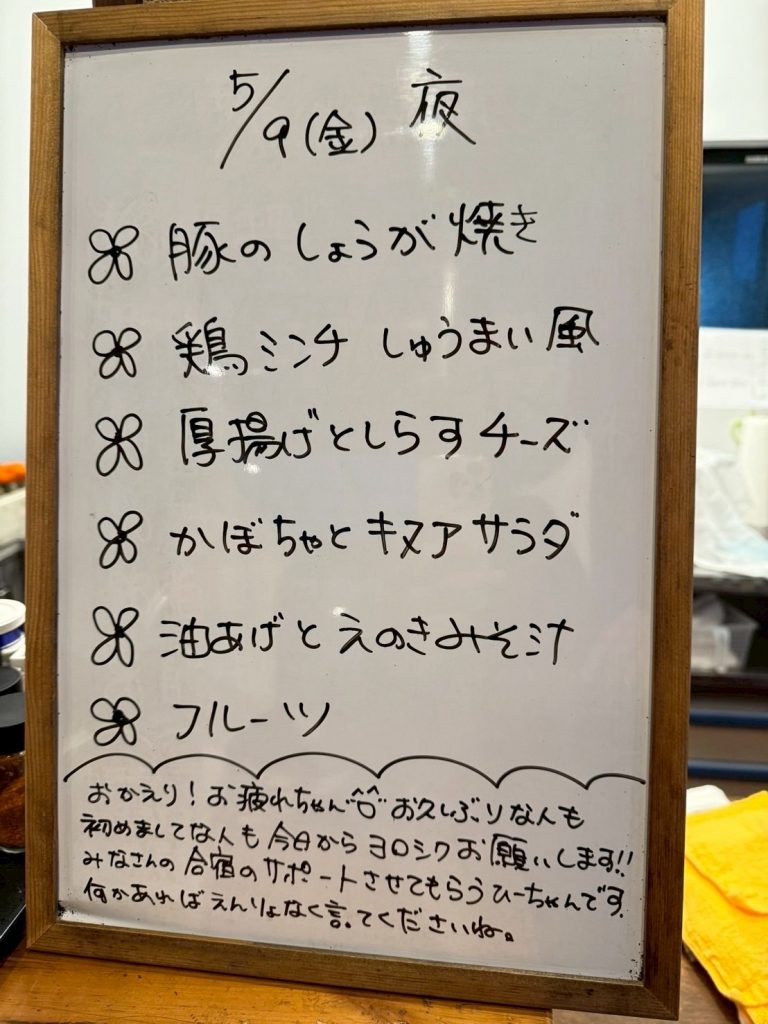 5/9(金) 夜
豚のしょうが焼き
鶏ミンチ しゅうまい風
厚揚げとしらすチーズ
かぼちゃとキヌアサラダ
油あげとえのきみそ汁
フルーツ
おかえり!お疲れちゃん^o^お久しぶりな人も
初めましてな人も今日からヨロシクお願いします!!
みなさんの合宿のサポートさせてもらうひーちゃんです。
何かあればえんりょなく言ってくださいね。